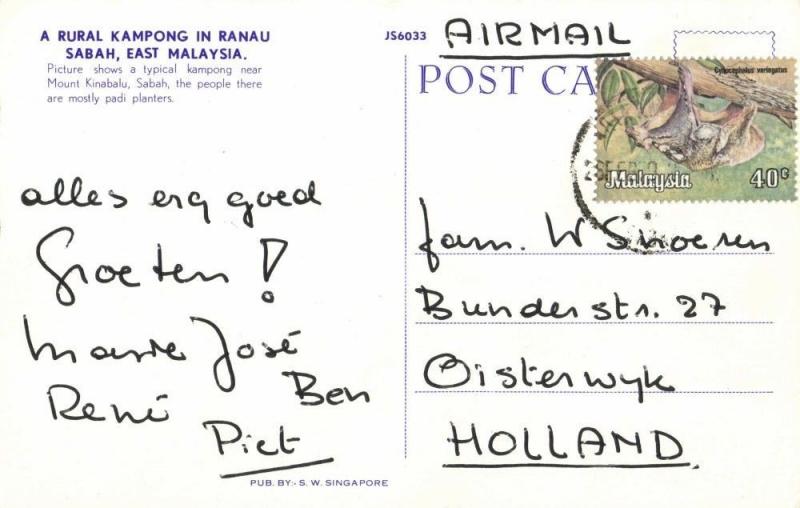 A RURAL KAMPONG IN RANAU
SABAH, EAST MALAYSIA.
Picture shows a typical kampong near
Mount Kinabalu, Sabah, the people there
are mostly padi planters.
alles erg goed
Groeten!
Marie José
René Ben
Piet
PUB. BY:- S. W. SINGAPORE
JS6033
AIRMAIL
POST CA
Cynocephalus variegatus
Malaysia 40c
fam. W Snoeren
Bunderstr. 27
Oisterwyk
HOLLAND.